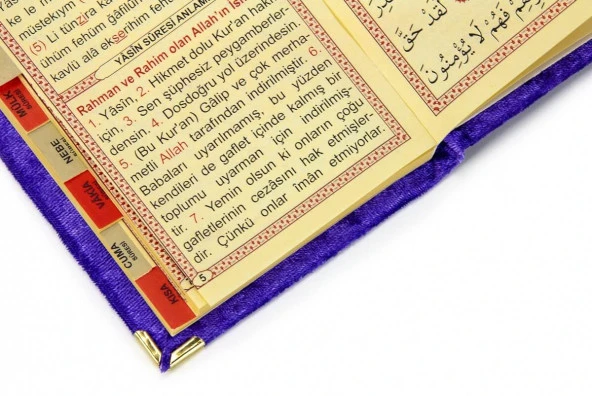 ke le m
müstekıym
(5) Li tünzira ka
ühüm fehüm ğâfilûn
kavlü alâ ekserihim feh
YÂSİN SÛRESİ ANLAM
Rahman ve Rahim olan Allah'ın ism
1. Yâsin, 2. Hikmet dolu Kur'an hakk
için, 3. Sen şüphesiz peygamberler-
densin. 4. Dosdoğru yol üzerindesin.
5. (Bu Kur'an) Gâlip ve çok merha-
metli Allah tarafından indirilmiştir. 6.
Babaları uyarılmamış, bu yüzden
kendileri de gaflet içinde kalmış bir
toplumu uyarman için indirilmiş-
tir. 7. Yemin olsun ki onların çoğu
gafletlerinin cezâsını hak etmişler-
dir. Çünkü onlar îmân etmiyorlar.
5
MÜLK
SÛRESİ
NEBE
SÛRESİ
VÂKIA
CUMA
SÛRESİ
KISA
لَقَدْ حَقَّ
فَهُمْ لَا يُؤْمِنُونَ